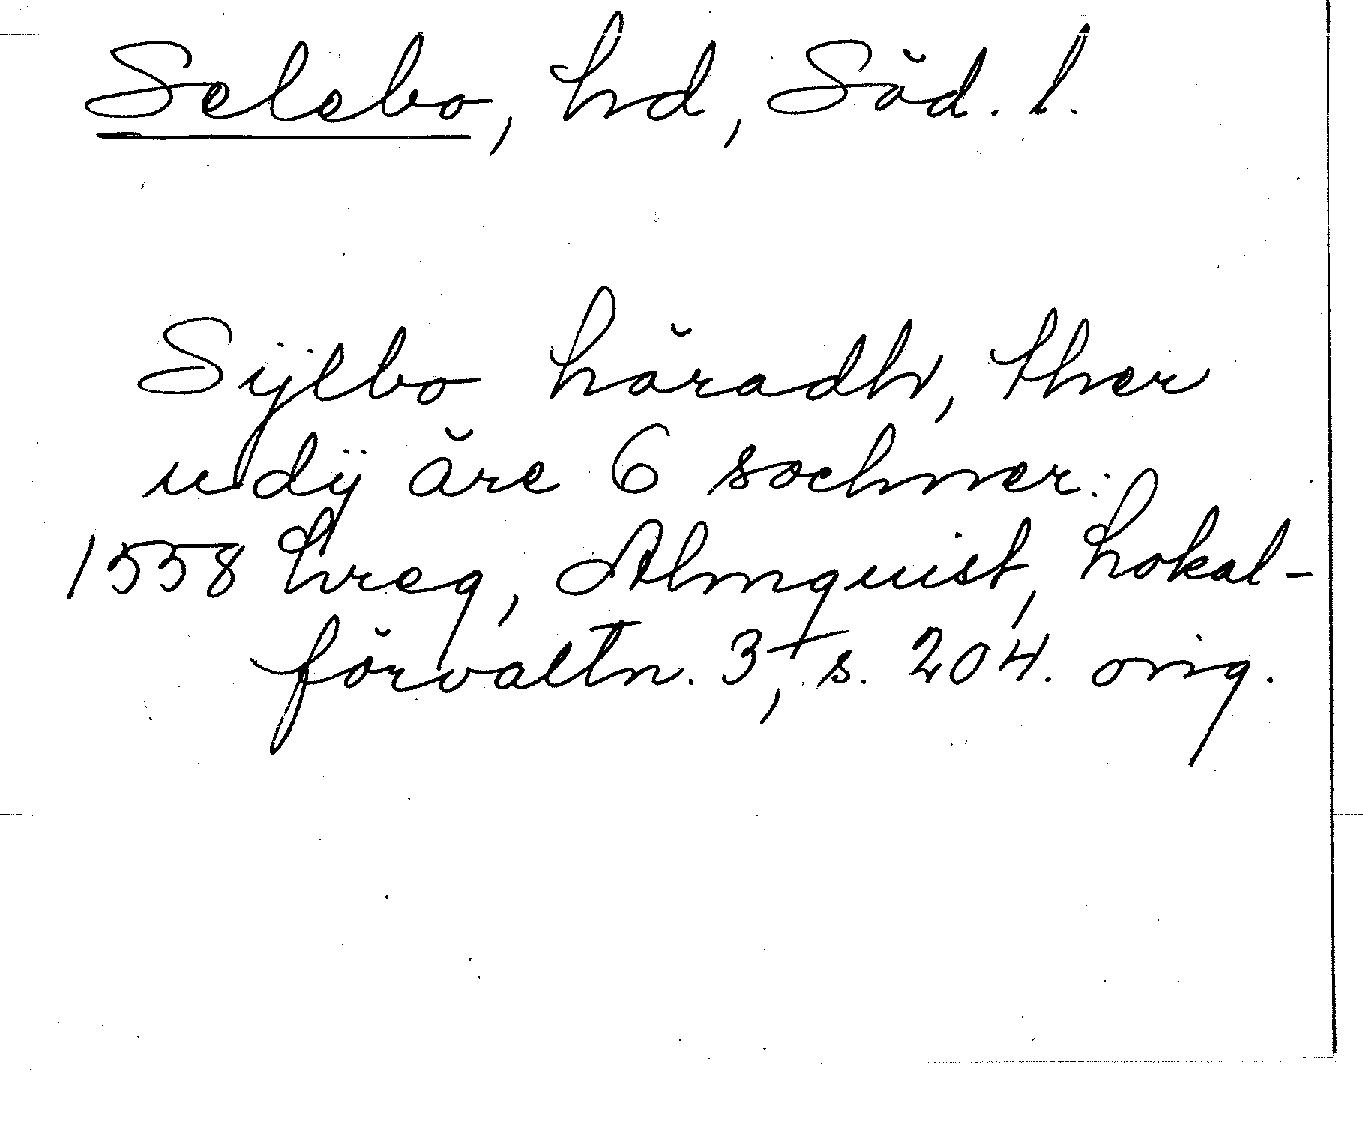 Selebo, hd, Söd. l.
Sÿlbo häradh, ther
udÿ äre 6 sochner.
1558 hreg, Almquist, Lokal-
förvaltn. 3, s. 204. orig.